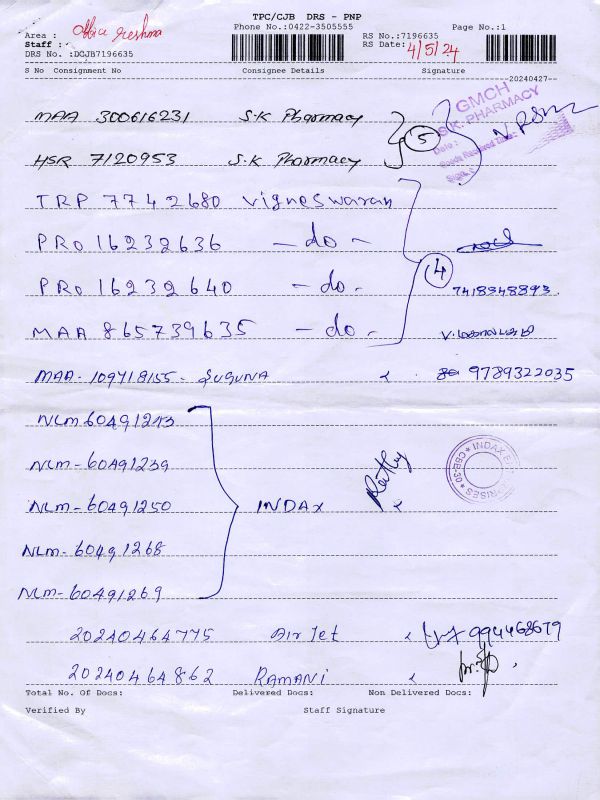 TPC/CJB DRS - PNP
Area : Office Reshma
Phone No.:0422-3505555
RS No.:7196635
Page No.:1
Staff :
RS Date: 4/5/24
DRS No. :DCJB7196635
S No Consignment No Consignee Details Signature
--20240427--
MAA 300616231 S.K Pharmacy
GMCH
S.K. PHARMACY
Date :
5
HSR 7120953 S.K Pharmacy
TRP 7742680 Vigneswaran
PRO 16232636 - do -
4
PRO 16232640 - do - 7418348893
MAA 865739635 - do -
MAA-109718155- SUGUNA 9789322035
NLM 60491243
NLM-60491239
INDAX ENTERPRISES
CBE-30
NLM-60491250 INDAX
NLM-60491268
NLM-60491269
20240464775 Air Jet 994468679
20240464862 RAMANI
Total No. Of Docs: Delivered Docs: Non Delivered Docs:
Verified By Staff Signature